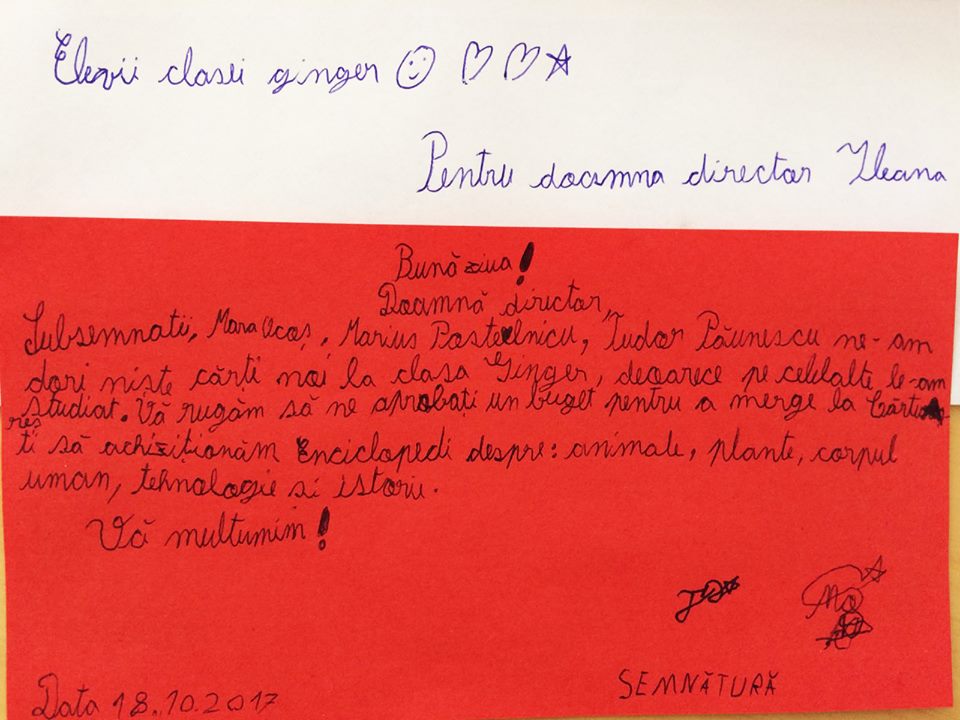 Elevii clasei ginger
Pentru doamna director Ileana
Bună ziua!
Doamnă director,
Subsemnatii, Mara Ucoș, Marius Pastelnicu, Tudor Păunescu ne-am
dori niște cărți noi la clasa Ginger, deoarece pe celelalte le-am
studiat. Vă rugăm să ne aprobati un buget pentru a merge la Cărtu
rești să achiziționăm Enciclopedi despre: animale, plante, corpul
uman, tehnologie si istorie.
Vă multumim!
SEMNĂTURĂ
Data 18.10.2017